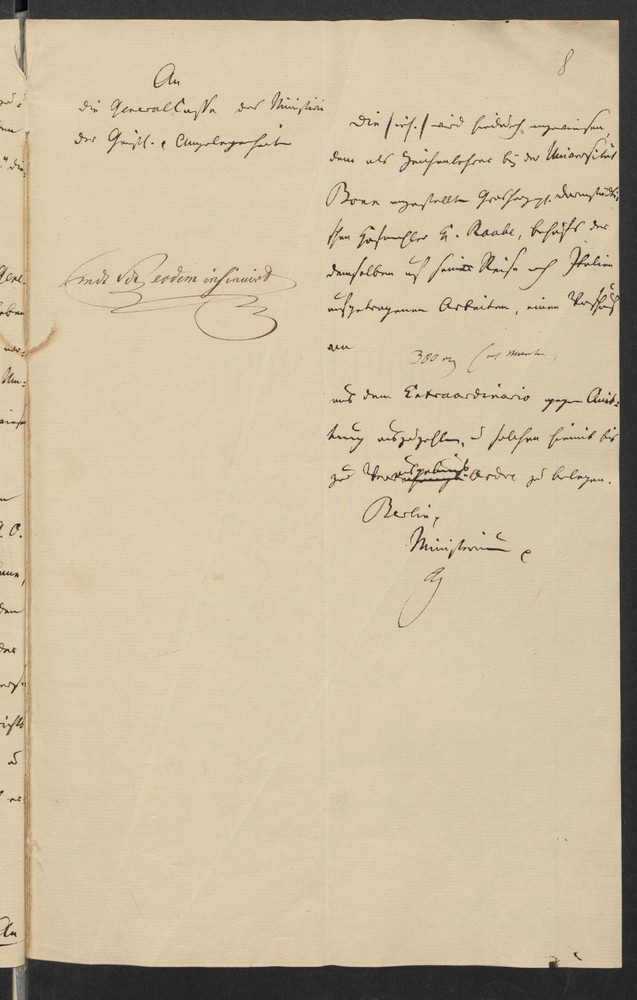 8
An
die General Casse des Ministerii
der Geistl. p Angelegenheiten
mdt. eodem insinuirt
Die (tit.) wird hierdurch angewiesen,
dem als Zeichenlehrer bei der Universität
Bonn angestellten Großherzogl. Darmstädti-
schen Hofmahler H. Raabe, behufs der
demselben auf seiner Reise nach Italien
aufgetragenen Arbeiten, einen Vorschuß
von
300
aus dem Extraordinario gegen Quit-
tung auszuzahlen, u solchen hiemit bis
zur Ordre zu belegen.
Berlin,
Ministerium p